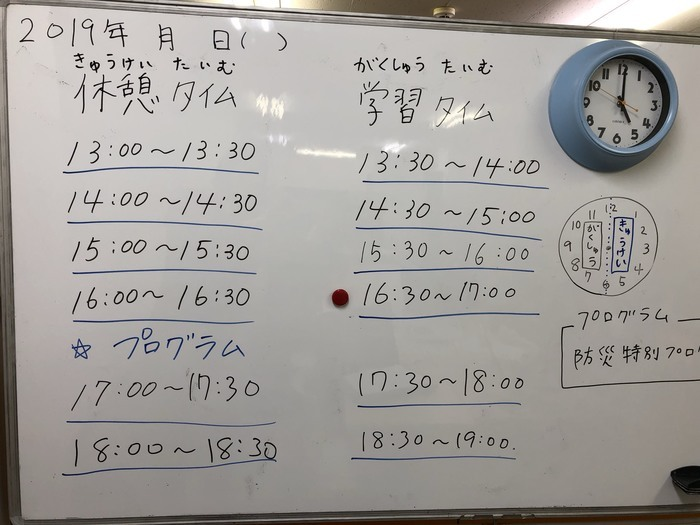 2019年 月 日( )
きゅうけい たいむ
休憩 タイム
13:00〜13:30
14:00〜14:30
15:00〜15:30
16:00〜16:30
☆ プログラム
17:00〜17:30
18:00〜18:30
がくしゅう たいむ
学習 タイム
13:30〜14:00
14:30〜15:00
15:30〜16:00
16:30〜17:00
17:30〜18:00
18:30〜19:00.
12
1
2
3
4
5
6
7
8
9
10
11
12
1
2
3
4
5
6
7
8
9
10
11
がくしゅう
きゅうけい
プログラム
防災特別プロ